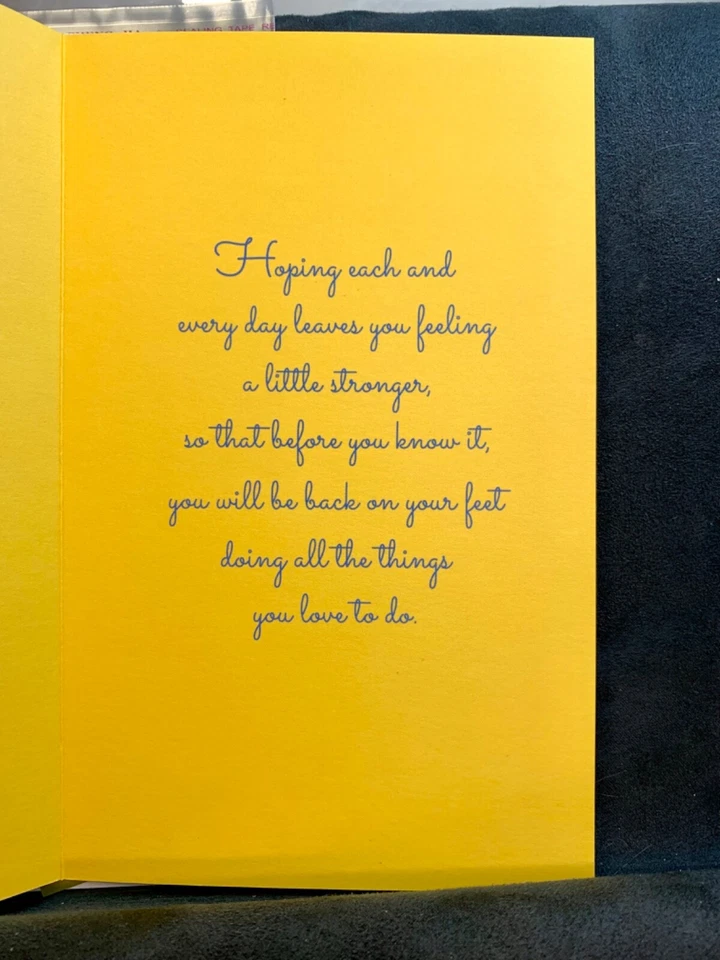 SEALING TAPE
Hoping each and
every day leaves you feeling
a little stronger,
so that before you know it,
you will be back on your feet
doing all the things
you love to do.